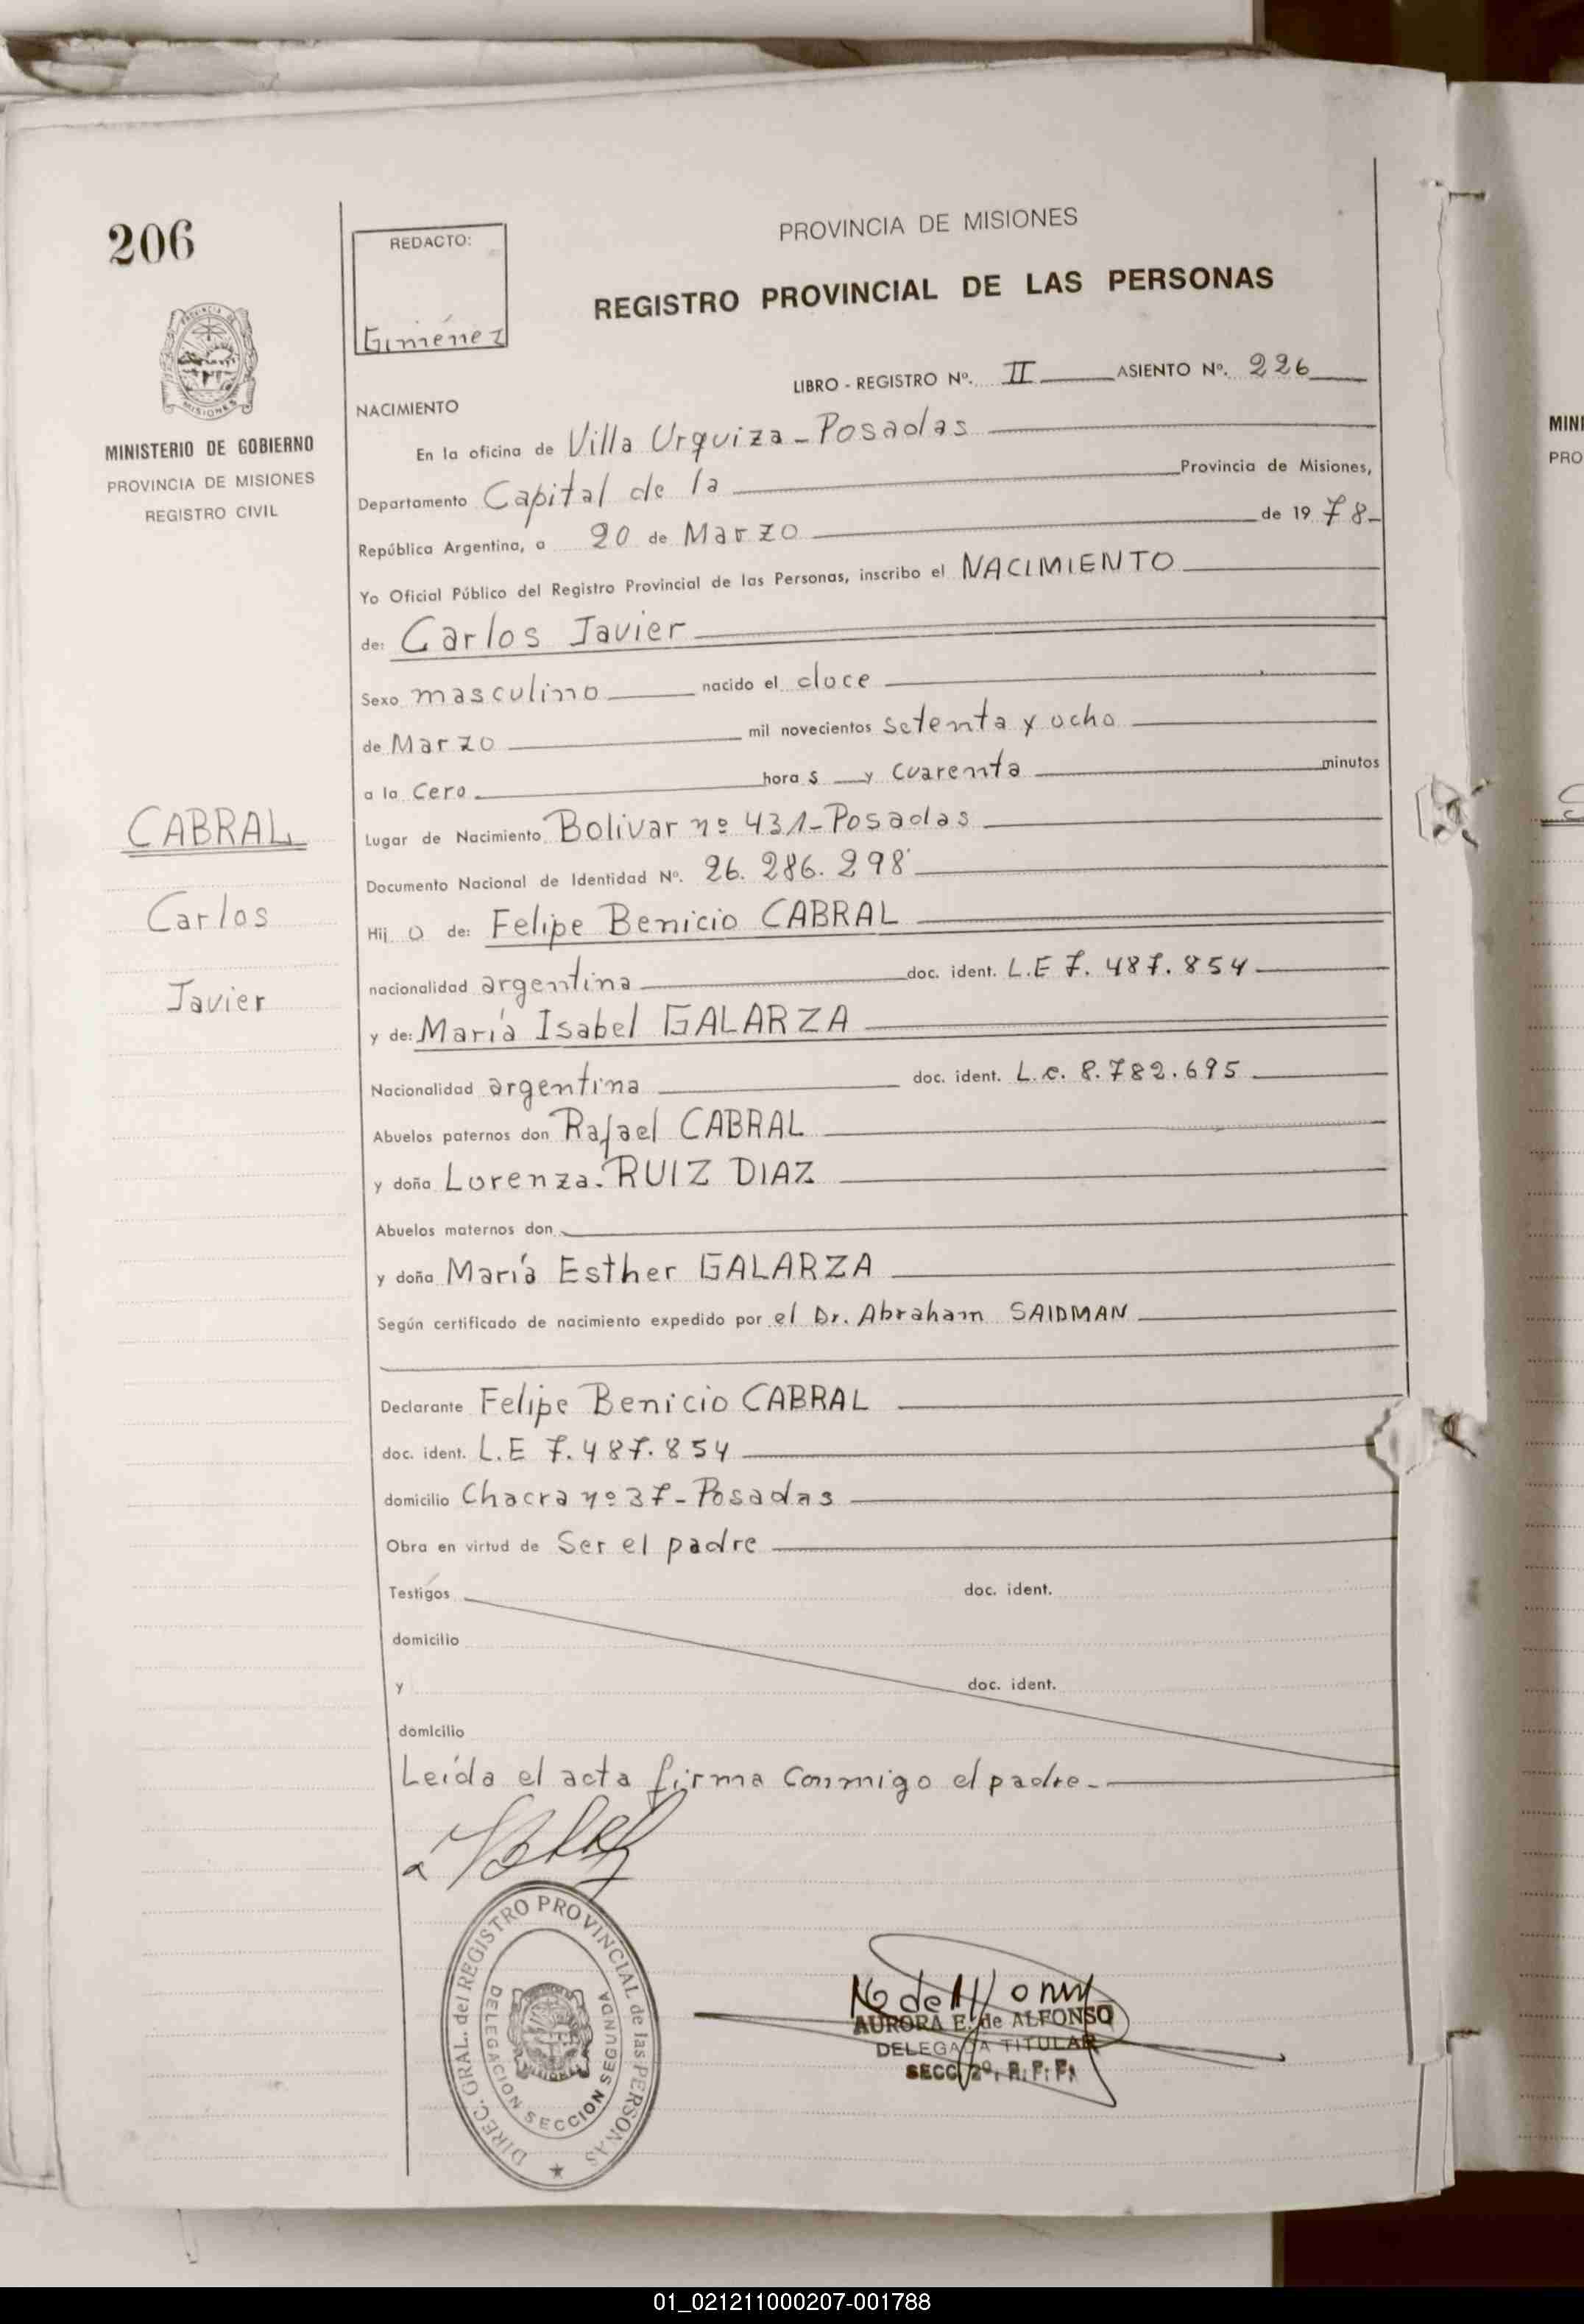 206
REDACTO:
Giménez
PROVINCIA DE MISIONES
REGISTRO PROVINCIAL DE LAS PERSONAS
MISIONES
MINISTERIO DE GOBIERNO
PROVINCIA DE MISIONES
REGISTRO CIVIL
LIBRO - REGISTRO Nº. II ASIENTO Nº. 226
NACIMIENTO
En la oficina de Villa Urquiza - Posadas
Departamento Capital de la Provincia de Misiones,
República Argentina, a 20 de Marzo de 19 78-
Yo Oficial Público del Registro Provincial de las Personas, inscribo el NACIMIENTO
de: Carlos Javier
Sexo masculino nacido el doce
de Marzo mil novecientos setenta y ocho
a la Cero hora s y Cuarenta minutos
CABRAL
Carlos
Javier
Lugar de Nacimiento Bolivar nº 431 - Posadas
Documento Nacional de Identidad Nº. 26. 286. 298
Hij o de: Felipe Benicio CABRAL
nacionalidad argentina doc. ident. L.E 7. 487. 854
y de: María Isabel GALARZA
Nacionalidad argentina doc. ident. L.c. 8.782.695
Abuelos paternos don Rafael CABRAL
y doña Lorenza. RUIZ DIAZ
Abuelos maternos don
y doña María Esther GALARZA
Según certificado de nacimiento expedido por el Dr. Abraham SAIDMAN
Declarante Felipe Benicio CABRAL
doc. ident. L.E 7. 487. 854
domicilio Chacra nº 37 - Posadas
Obra en virtud de Ser el padre
Testigos doc. ident.
domicilio
y doc. ident.
domicilio
Leída el acta firma Conmigo el padre.-
DIREC. GRAL. del REGISTRO PROVINCIAL de las PERSONAS
DELEGACION SECCION SEGUNDA
AURORA E. de ALFONSO
DELEGADA TITULAR
SECC. 2º, R. P. P.
MINI
PRO
01_021211000207-001788